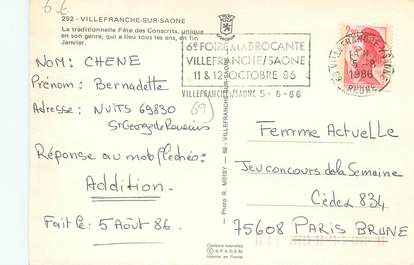 6 €
252 - VILLEFRANCHE-SUR-SAONE
La traditionnelle Fête des Conscrits, unique
en son genre, qui a lieu tous les ans, en fin
Janvier.
NOM: CHENE
Prénom: Bernadette
Adresse: NUITS 69830
St George de Reneins
69
Réponse au mot fléchés:
Addition.
Fait le: 5 Août 86.
6e FOIRE A LA BROCANTE
VILLEFRANCHE/SAONE
11 & 12 OCTOBRE 86
VILLEFRANCHE/SAONE 5-8-86
5-8
1986
RHONE
Photo R. MORSY - 69 - VILLEFRANCHE-SUR-SAONE
Couleurs naturelles
© S.P.A.D.E.M.
Imprimé en France
Femme Actuelle
Jeu concours de la Semaine
Cédex 834
75608 PARIS BRUNE